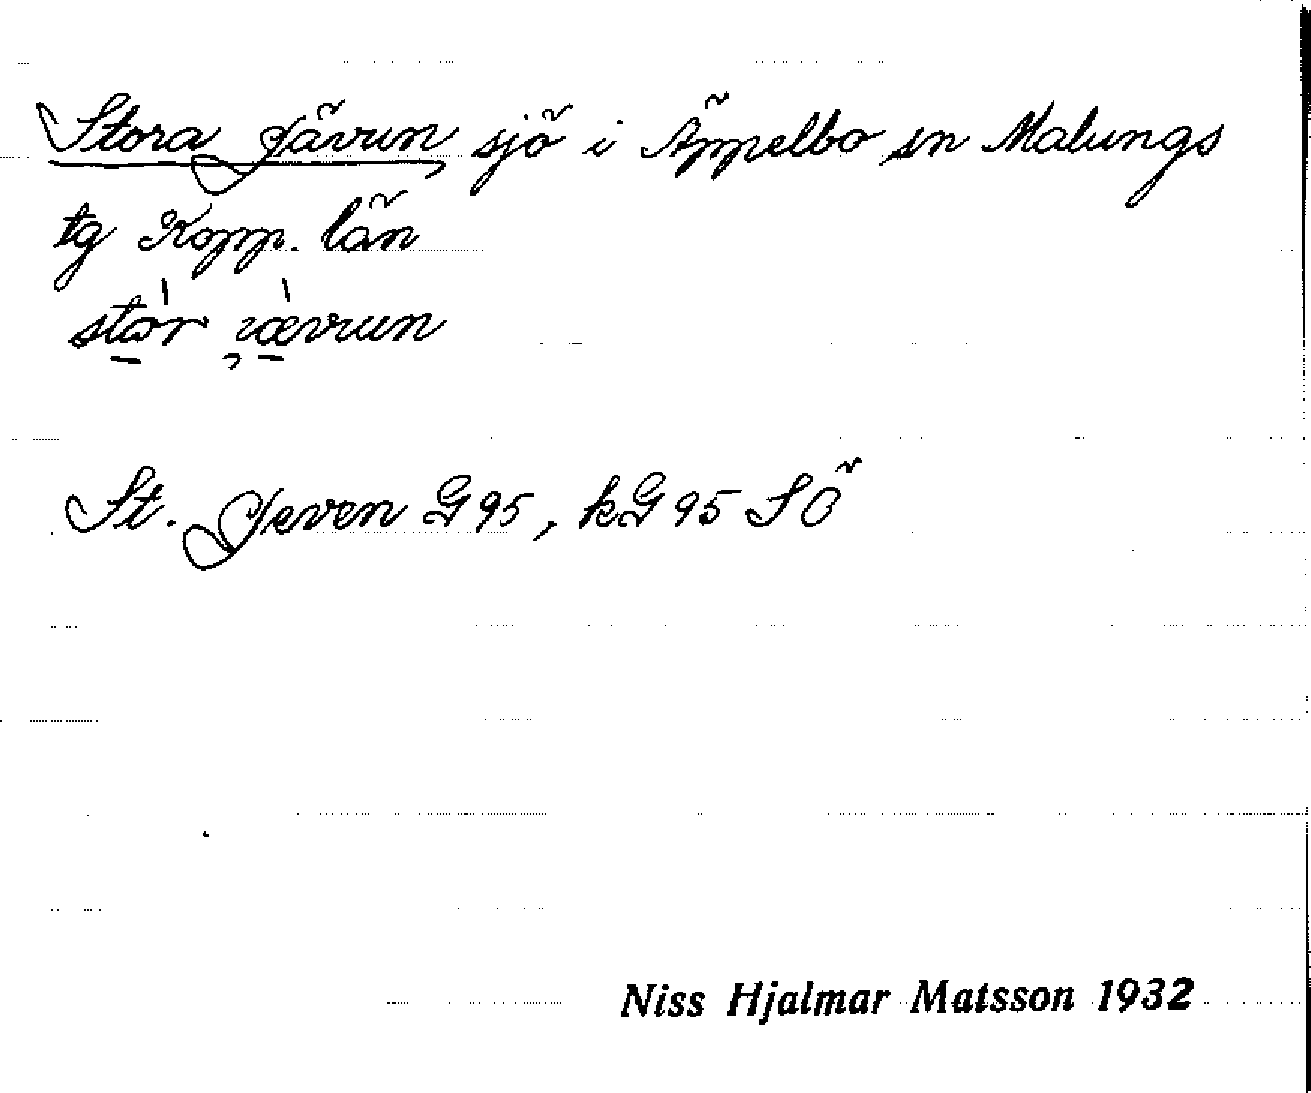 Stora Jävrun sjö i Äppelbo sn Malungs
tg Kopp. län
St. Jeven G 95, kG 95 SÖ
Niss Hjalmar Matsson 1932